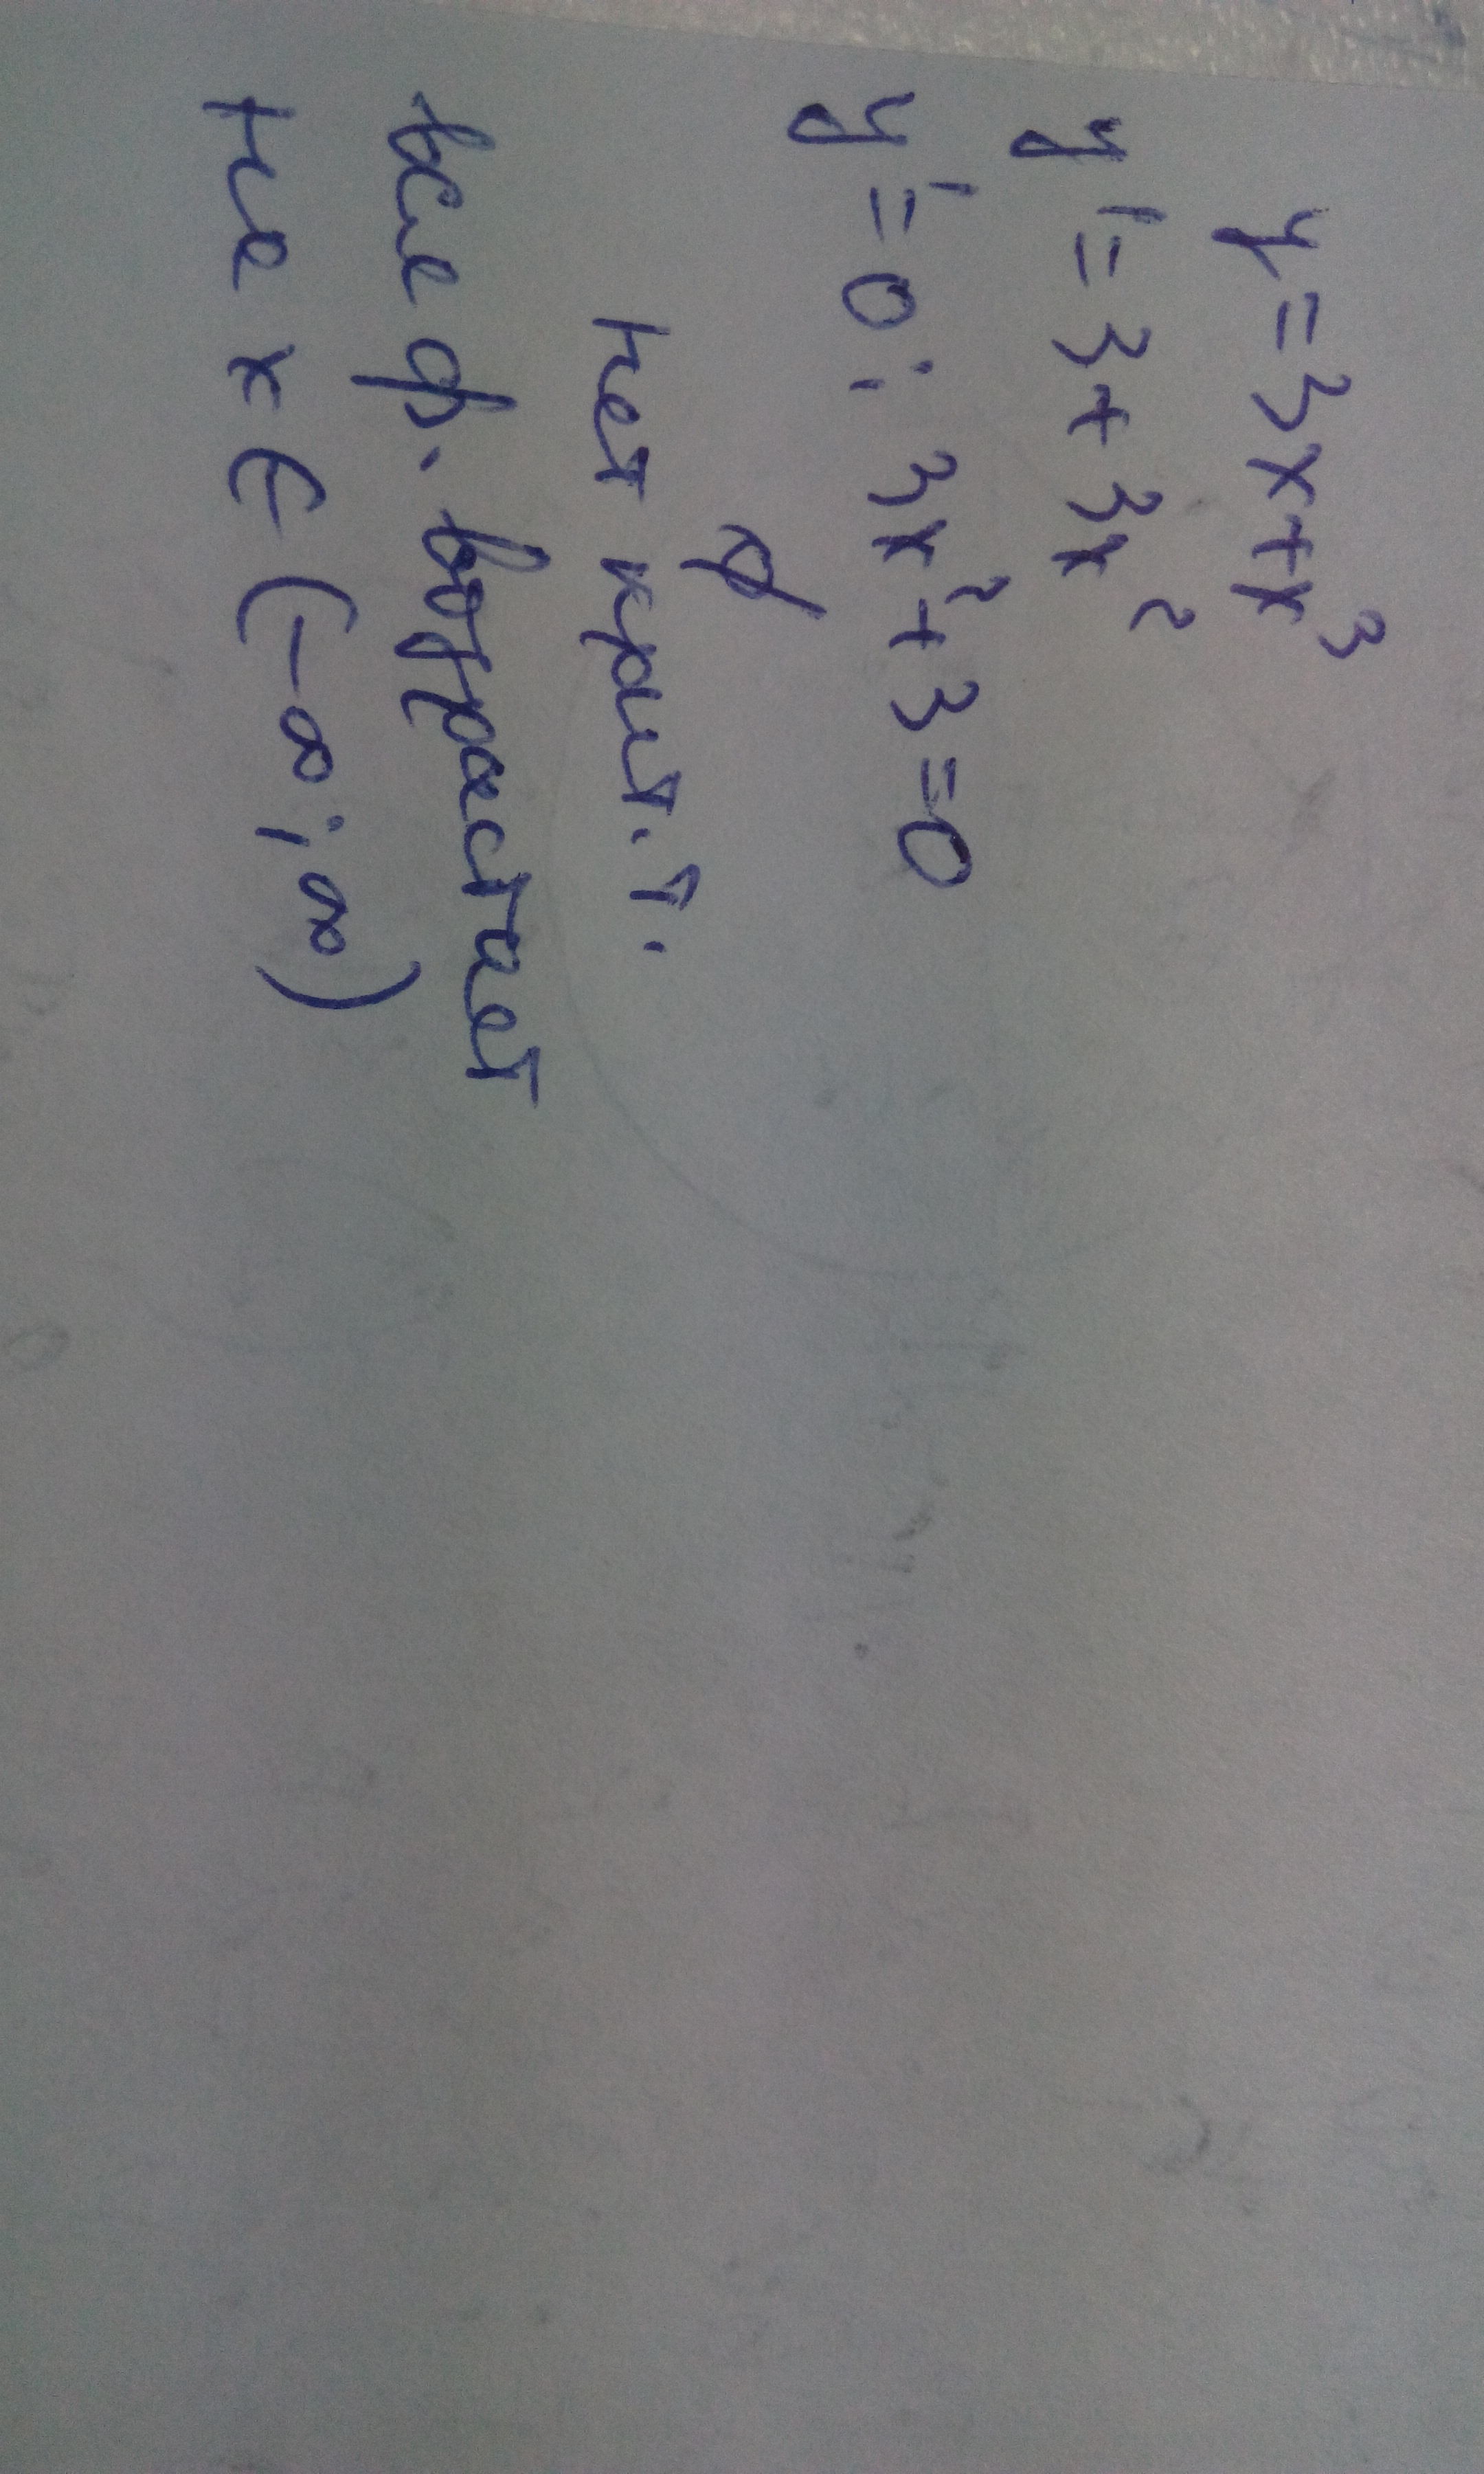 y = 3x + x³
y' = 3 + 3x²
y' = 0; 3x² + 3 = 0
∅
нет крит. т.
вся ф. возрастает
на x ∈ (-∞; ∞)